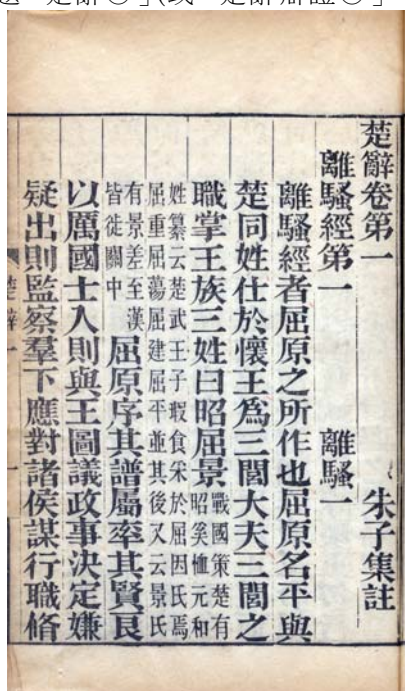 楚辭卷第一　朱子集註
離騷經第一　離騷一
離騷經者屈原之所作也屈原名平與
楚同姓仕於懷王爲三閭大夫三閭之
職掌王族三姓曰昭屈景戰國策楚有昭奚恤元和
姓纂云楚武王子瑕食采於屈因氏焉
屈重屈蕩屈建屈平並其後又云景氏
有景差至漢皆徙關中屈原序其譜屬率其賢良
以厲國士入則與王圖議政事決定嫌
疑出則監察羣下應對諸侯謀行職脩